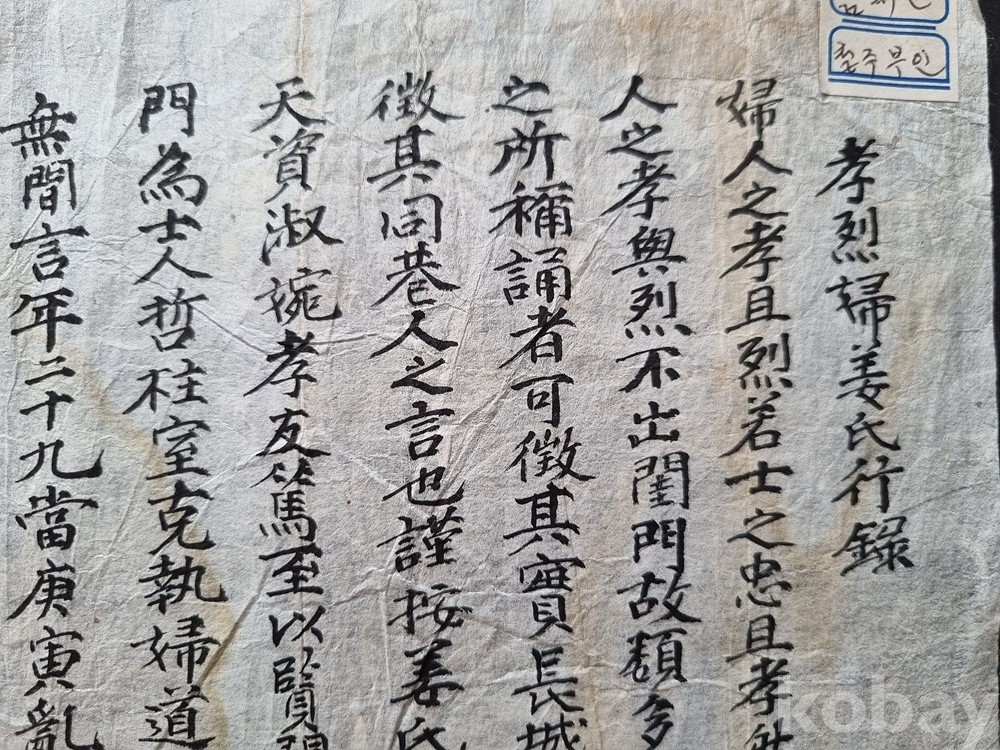 청주부인
孝烈婦姜氏行錄
婦人之孝且烈若士之忠且孝然
人之孝與烈不出閨門故類多
之所稱誦者可徵其實長城
徵其同巷人之言也謹按姜氏
天資淑婉孝友篤至以賢
門為士人哲柱室克執婦道
無間言年二十九當庚寅亂
kobay